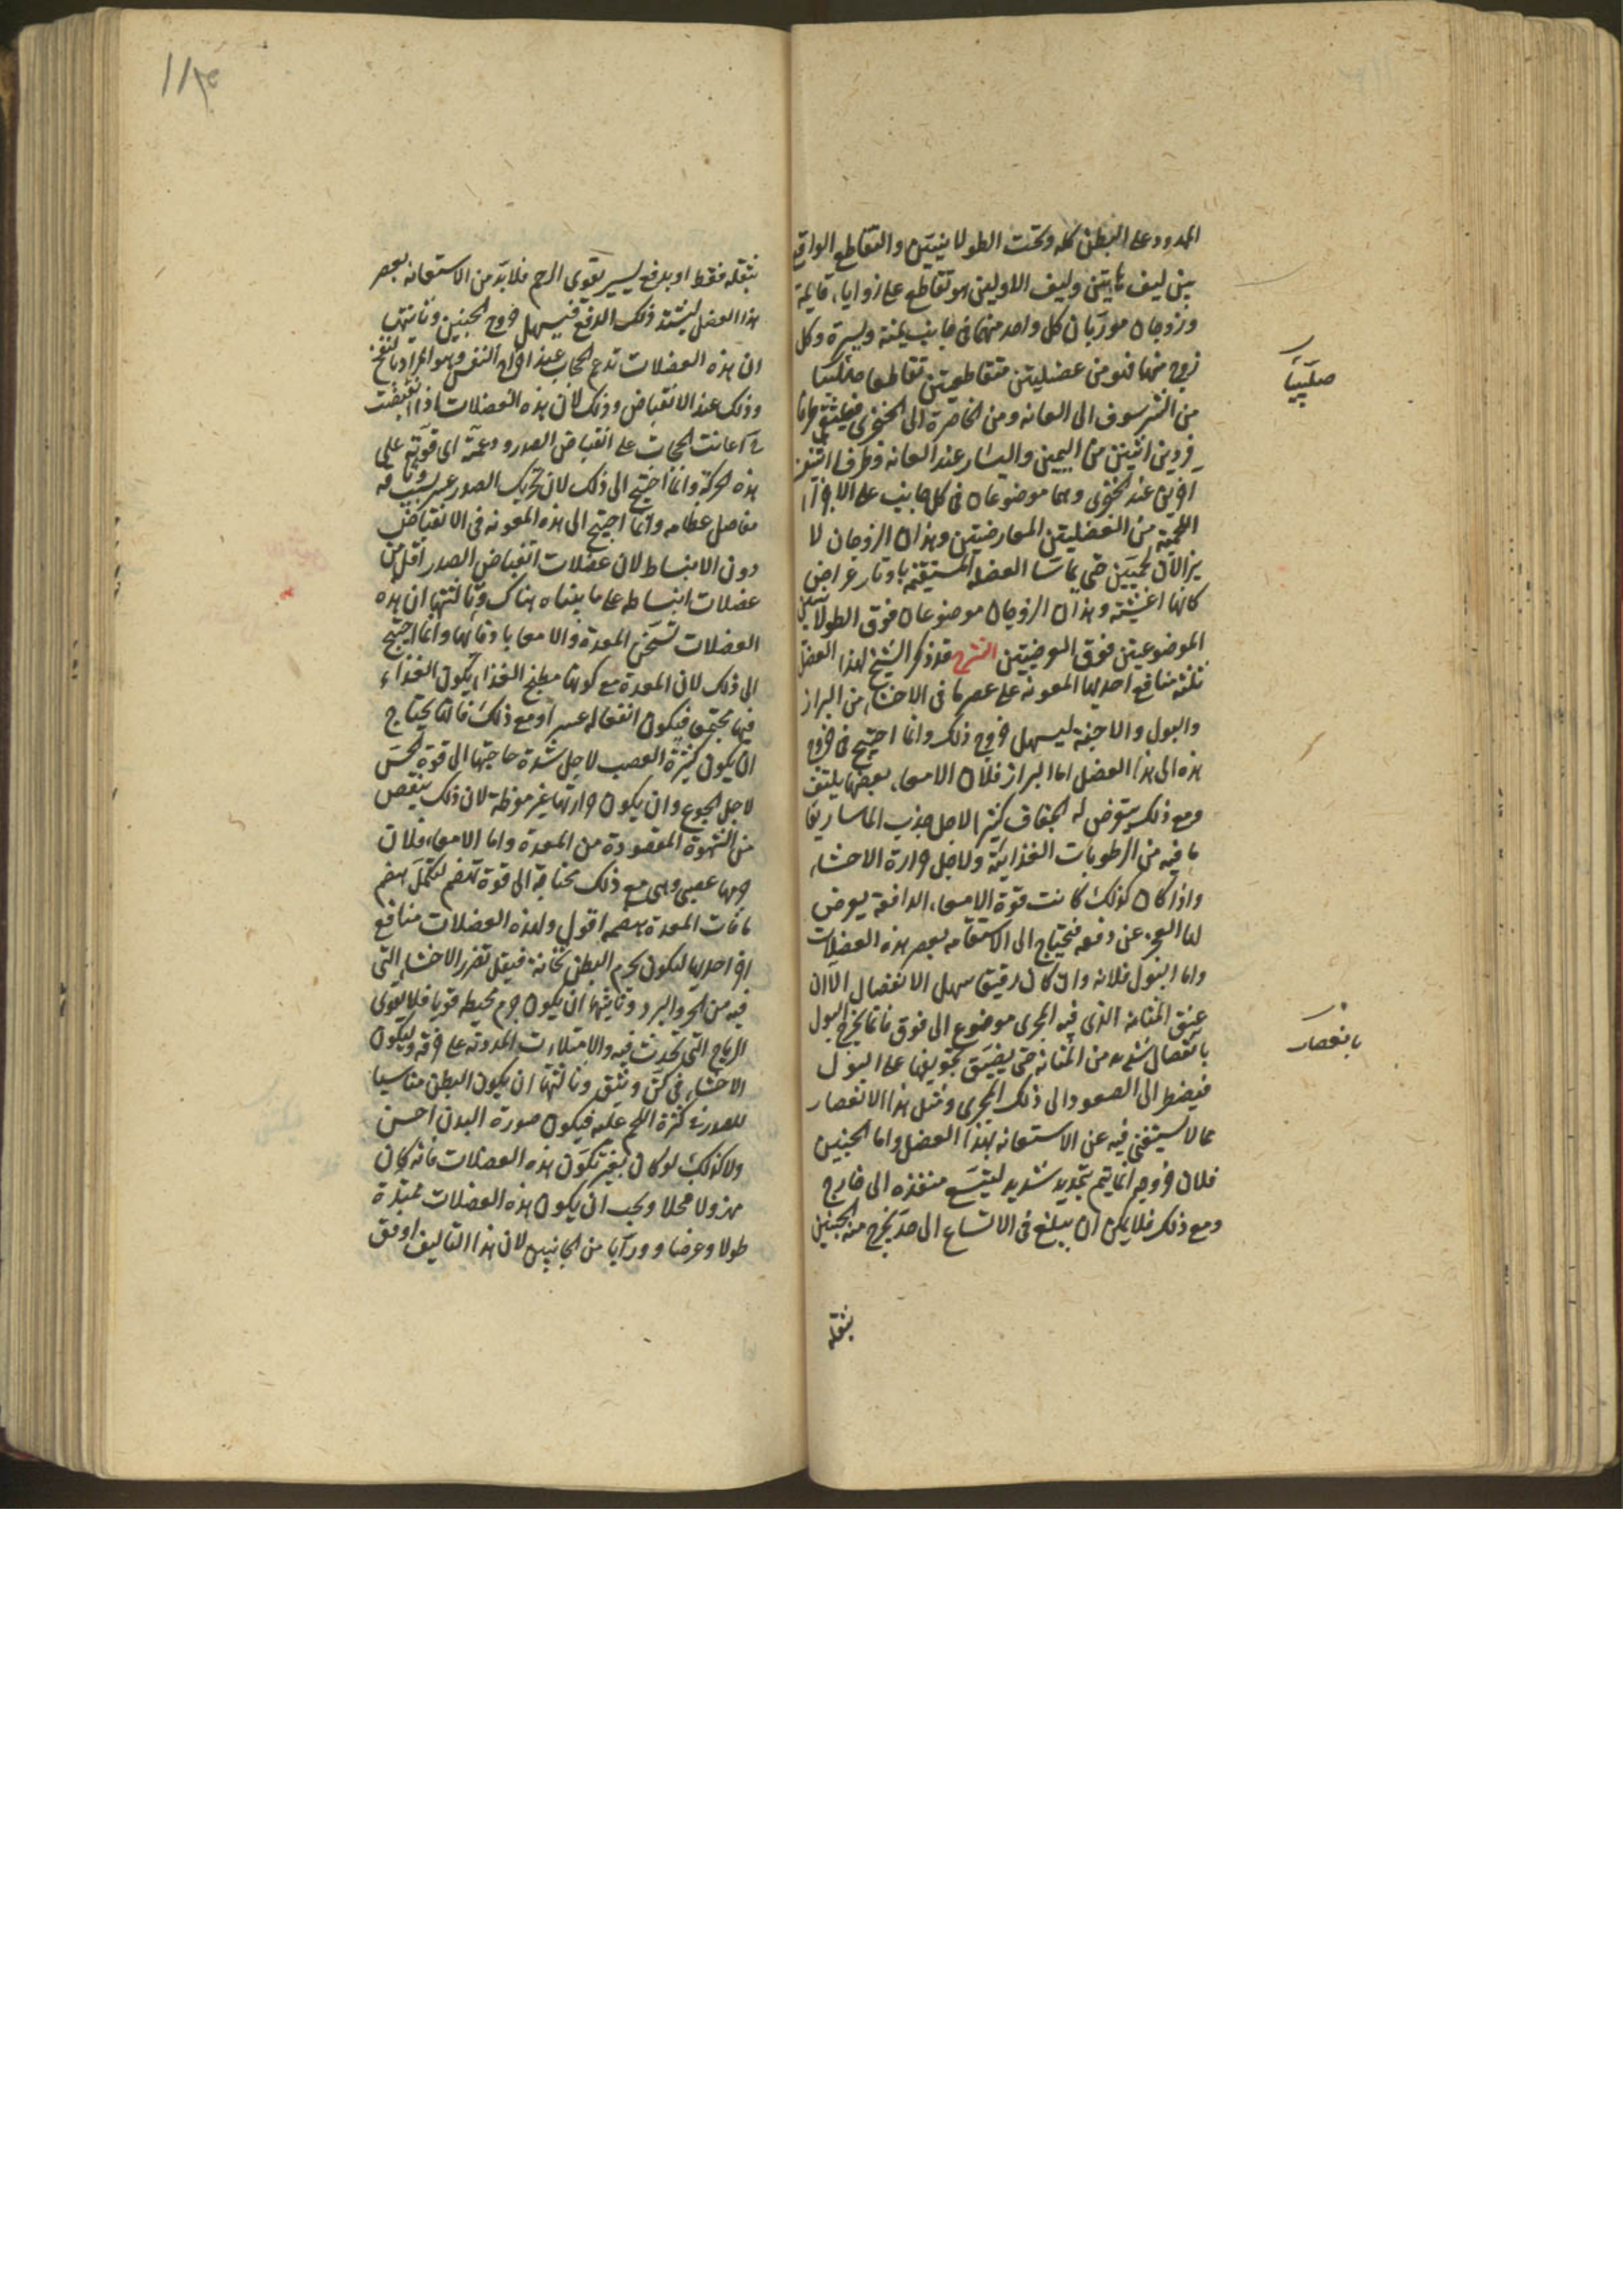 الممدود على البطن كله وتحت الطولانيتين والتقاطع الواقع
بين ليف هاتين وليف الاوليين هو تقاطع على زوايا قايمة
وزوجان موربان كل واحد منهما فى جانب يمنة ويسرة وكل
زوج منها فهو من عضليتين متقاطعتين تقاطعا
صليبيا
من الشرسوف الى العانة ومن الخاصرة الى الخنجرى
فردين اثنين من اليمين واليسار عند العانة وطرفا اثنين
اخرين عند الخنجرى وهما موضوعان فى كل جانب على الاجزآ
اللحمية من العضليتين المعارضتين وهذان الزوجان لا
يزالان لحميين حتى يماسا العضلة المستقيمة باوتار عراض
كانها اغشية وهذان الزوجان موضوعان فوق الطولانيتين
الموضوعتين فوق العرضيتين الشرح قد ذكر الشيخ لهذا العضل
ثلثة منافع احديها المعونة على عصر ما فى الاحشاء من البراز
والبول والاجنة ليسهل خروج ذلك وانما احتيج فى خروج
هذه الى هذا العضل اما البراز فلان الامعاء بعضها يلتف
ومع ذلك يعرض له الجفاف كثيرا لاجل جذب الماساريقا
ما فيه من الرطوبات الغذائية ولاجل حرارة الاحشاء
واذا كان كذلك كانت قوة الامعاء الدافعة يعرض
لها العجز عن دفعه فيحتاج الى الاستعانة بعصر هذه العضلات
واما البول فلانه وان كان رقيقا سهل الانفصال الا ان
عنق المثانة الذى فيه المجرى موضوع الى فوق فانما يخرج البول
بانعصار
بانفصال شديد من المثانة حتى يضيق تجويفها على البول
فيضطر الى الصعود الى ذلك المجرى ومثل هذا الانعصار
مما لا يستغنى فيه عن الاستعانة بهذا العضل واما الجنين
فلان خروجه انما يتم بتمديد شديد ليتسع منفذه الى خارج
ومع ذلك فلا يمكن ان يبلغ فى الاتساع الى حد يخرج منه الجنين
بثقله
بثقله فقط او بدفع يسير بقوى الرحم فلا بد من الاستعانة بعصر
هذا العضل ليشتد ذلك الدفع فيسهل خروج الجنين وثانيتها
ان هذه العضلات تدعم الحجاب عند اخراج النفس وهو المراد بالنفخ
وذلك عند الانقباض وذلك لان هذه العضلات اذا انقبضت
اعانت الحجاب على انقباض الصدر ودعمته اى قوته على
هذه الحركة وانما احتيج الى ذلك لان تحريك الصدر عسر بسبب وثاقة
مفاصل عظامه وانما احتيج الى هذه المعونة فى الانقباض
دون الانبساط لان عضلات انقباض الصدر اقل من
عضلات انبساطه على ما بيناه هناك وثالثتها ان هذه
العضلات تسخن المعدة والامعا بادفائها وانما احتيج
الى ذلك لان المعدة مع كونها مطبخ الغذا يكون الغذاء
فيها مجتمعا فيكون انفعاله عسرا ومع ذلك فانها يحتاج
ان يكون كثيرة العصب لاجل شدة حاجتها الى قوة الحس
لاجل الجوع وان يكون حرارتها غير مفرطة لان ذلك ينقص
من الشهوة المقصودة من المعدة واما الامعاء فلان
جرمها عصبى وهى مع ذلك محتاجة الى قوة تهضم لتكمل هضم
ما فات المعدة هضمه اقول ولهذه العضلات منافع
اخر احديها ليكون لجرم البطن ثخانة فيقل تضرر الاحشاء التى
فيه من الحر والبرد وثانيتها ان يكون جرم محيطه قويا فلا يقوى
الرياح التى تحدث فيه والامتلاءات الممددة له على خرقه وليكون
الاحشاء فى كن وثيق وثالثتها ان يكون البطن مناسبا
للصدر فى كثرة اللحم عليه فيكون صورة البدن احسن
ولا كذلك لو كان بغير تكون هذه العضلات فانه كان
مهزولا قحلا ويجب ان يكون هذه العضلات ممتدة
طولا وعرضا ووربا من الجانبين لان هذا التاليف اوفق